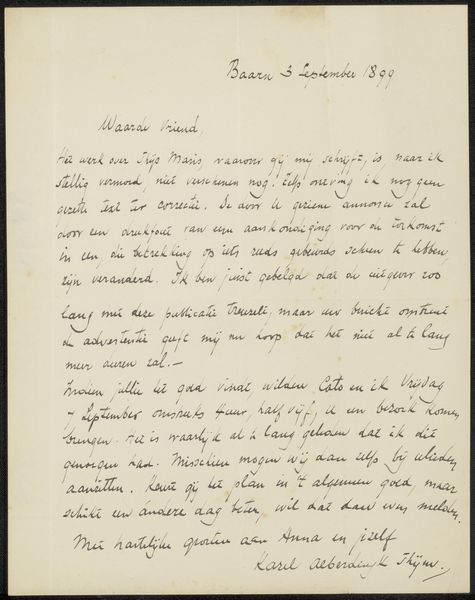 Baarn 3 September 1899
Waarde Vriend,
Het werk over Thijs Maris, waarover gij mij schrijft, is, naar ik
stellig vermoed, niet verschenen nog. Zelfs ontving ik nog geen
gezette text ter correctie. De door U geziene annonce zal
door een drukfout van een aankondiging voor de toekomst
in een, die betrekking op iets reeds gebeurds scheen te hebben,
zijn veranderd. Ik ben juist gebelgd dat de uitgever zoo
lang met deze publicatie treuzelt, maar uw bericht omtrent
de advertentie geeft mij nu hoop dat het niet al te lang
meer duren zal.—
Indien jullie het goed vindt wilden Coto en ik Vrijdag
7 September omstreeks 4 uur, half vijf, U een bezoek komen
brengen. Het is waarlijk al te lang geleden dat ik dit
genoegen had. Misschien mogen wij dan zelfs bij ulieden
aanzitten. Keurt gij het plan in 't algemeen goed, maar
schikt een ándere dag beter, wil dat dan even melden.
Met hartelijke groeten aan Anna en jezelf
Karel Alberdingk Thijm.